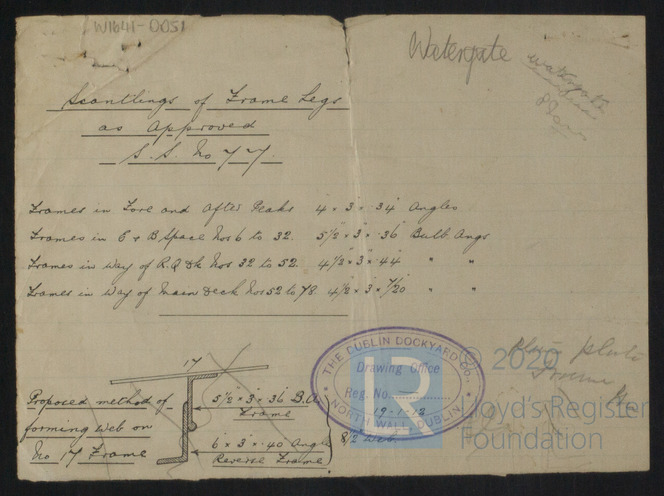 W1641-0051
Watergate
Watergate
Scantlings of Frame Legs
as Approved
S.S. No 77.
Frames in Fore and After Peaks 4 × 3 × .34 Angles
Frames in E & B Space Nos 6 to 32. 5½ × 3 × .36 Bulb. Angs
Frames in way of R.Q. Dk Nos 32 to 52. 4½ × 3 × .44 " "
Frames in Way of Main Deck Nos 52 to 78. 4½ × 3 × 7/20 " "
17
Proposed method of
forming Web on
No 17 Frame
5½ × 3 × .36 B.A.
Frame
6 × 3 × .40 Angle
Reverse Frame
8½ Web.
THE DUBLIN DOCKYARD CO.
Drawing Office
Reg. No.
19-1-12
NORTH WALL, DUBLIN
Frame
© 2020
Lloyd's Register
Foundation